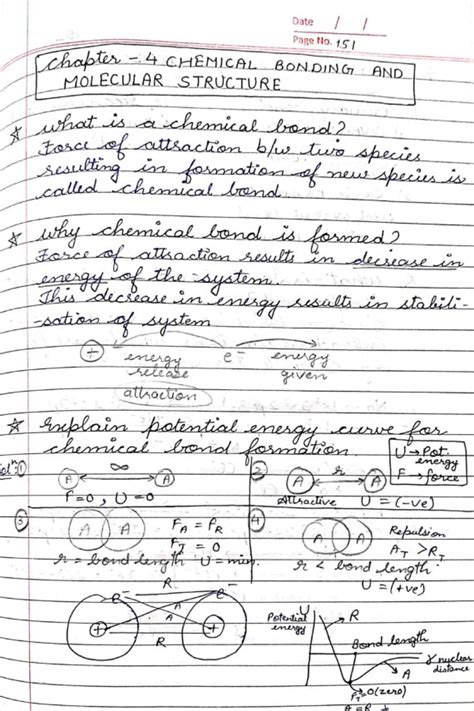 Date / /
Page No. 151
Chapter - 4 CHEMICAL BONDING AND
MOLECULAR STRUCTURE
☆ What is a chemical bond?
Force of attraction b/w two species
resulting in formation of new species is
called chemical bond.
☆ Why chemical bond is formed?
Force of attraction results in decrease in
energy of the system.
This decrease in energy results in stabili-
-sation of system
+ energy release e⁻ energy given
attraction
☆ Explain potential energy curve for
chemical bond formation
U → Pot. energy
F → force
① A ∞ A
F=0, U=0
② A r A
Attractive U = (-ve)
③ A A
F_A = F_R
F_T = 0
r = bond length U = min.
④ A A
Repulsion
A_T > R_T
r < bond length
U = (+ve)
R
e⁻ e⁻
A
A
+ +
R
U
Potential energy
R
Bond length
r nuclear distance
A
F_T = 0 (zero)
A = R